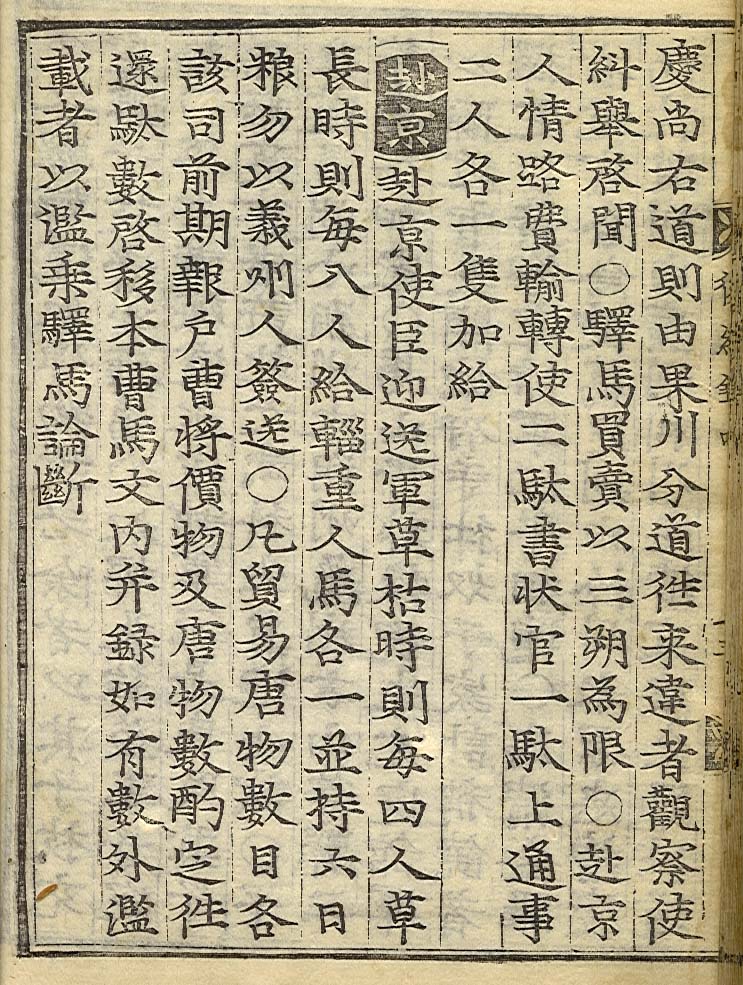 慶尚右道則由果川分道徃来違者觀察使
糾舉啓聞○驛馬買賣以三朔為限○赴京
人情路費輸轉使二駄書状官一駄上通事
二人各一隻加給
赴京 赴京使臣迎送軍草枯時則每四人草
長時則每八人給輜重人馬各一並持六日
粮勿以義州人簽送○凡貿易唐物數目各
該司前期報戶曹將價物及唐物數酌定徃
還駄數啓移本曹馬文內并録如有數外濫
載者以濫乗驛馬論斷